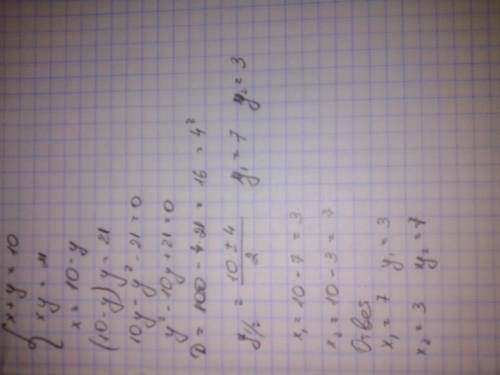 {x+y = 10
xy = 21
x = 10-y
(10-y) y = 21
10y - y² - 21 = 0
y² - 10y + 21 = 0
D = 100 - 4·21 = 16 = 4²
y½ = (10 ± 4)/2 y₁ = 7 y₂ = 3
x₁ = 10 - 7 = 3
x₂ = 10 - 3 = 7
Ответ:
x₁ = 7 y₁ = 3
x₂ = 3 y₂ = 7